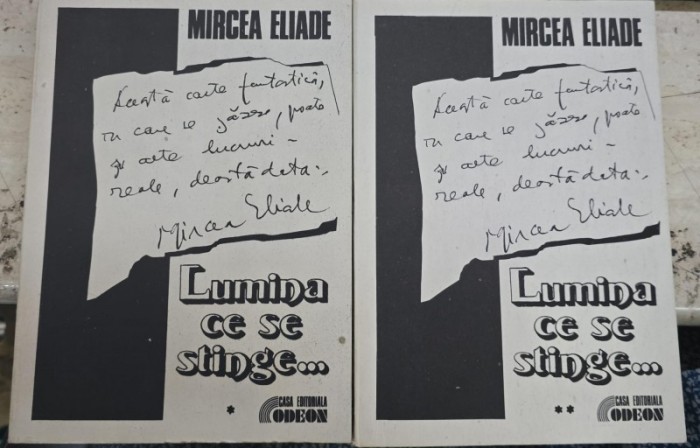 MIRCEA ELIADE
Această carte fantastică,
în care se găsesc, poate
și alte lucruri
reale, deastă data:
Mircea Eliade
Lumina
ce se
stinge...
*
CASA EDITORIALA
ODEON
MIRCEA ELIADE
Această carte fantastică,
în care se găsesc, poate
și alte lucruri
reale, deastă data:
Mircea Eliade
Lumina
ce se
stinge...
**
CASA EDITORIALA
ODEON